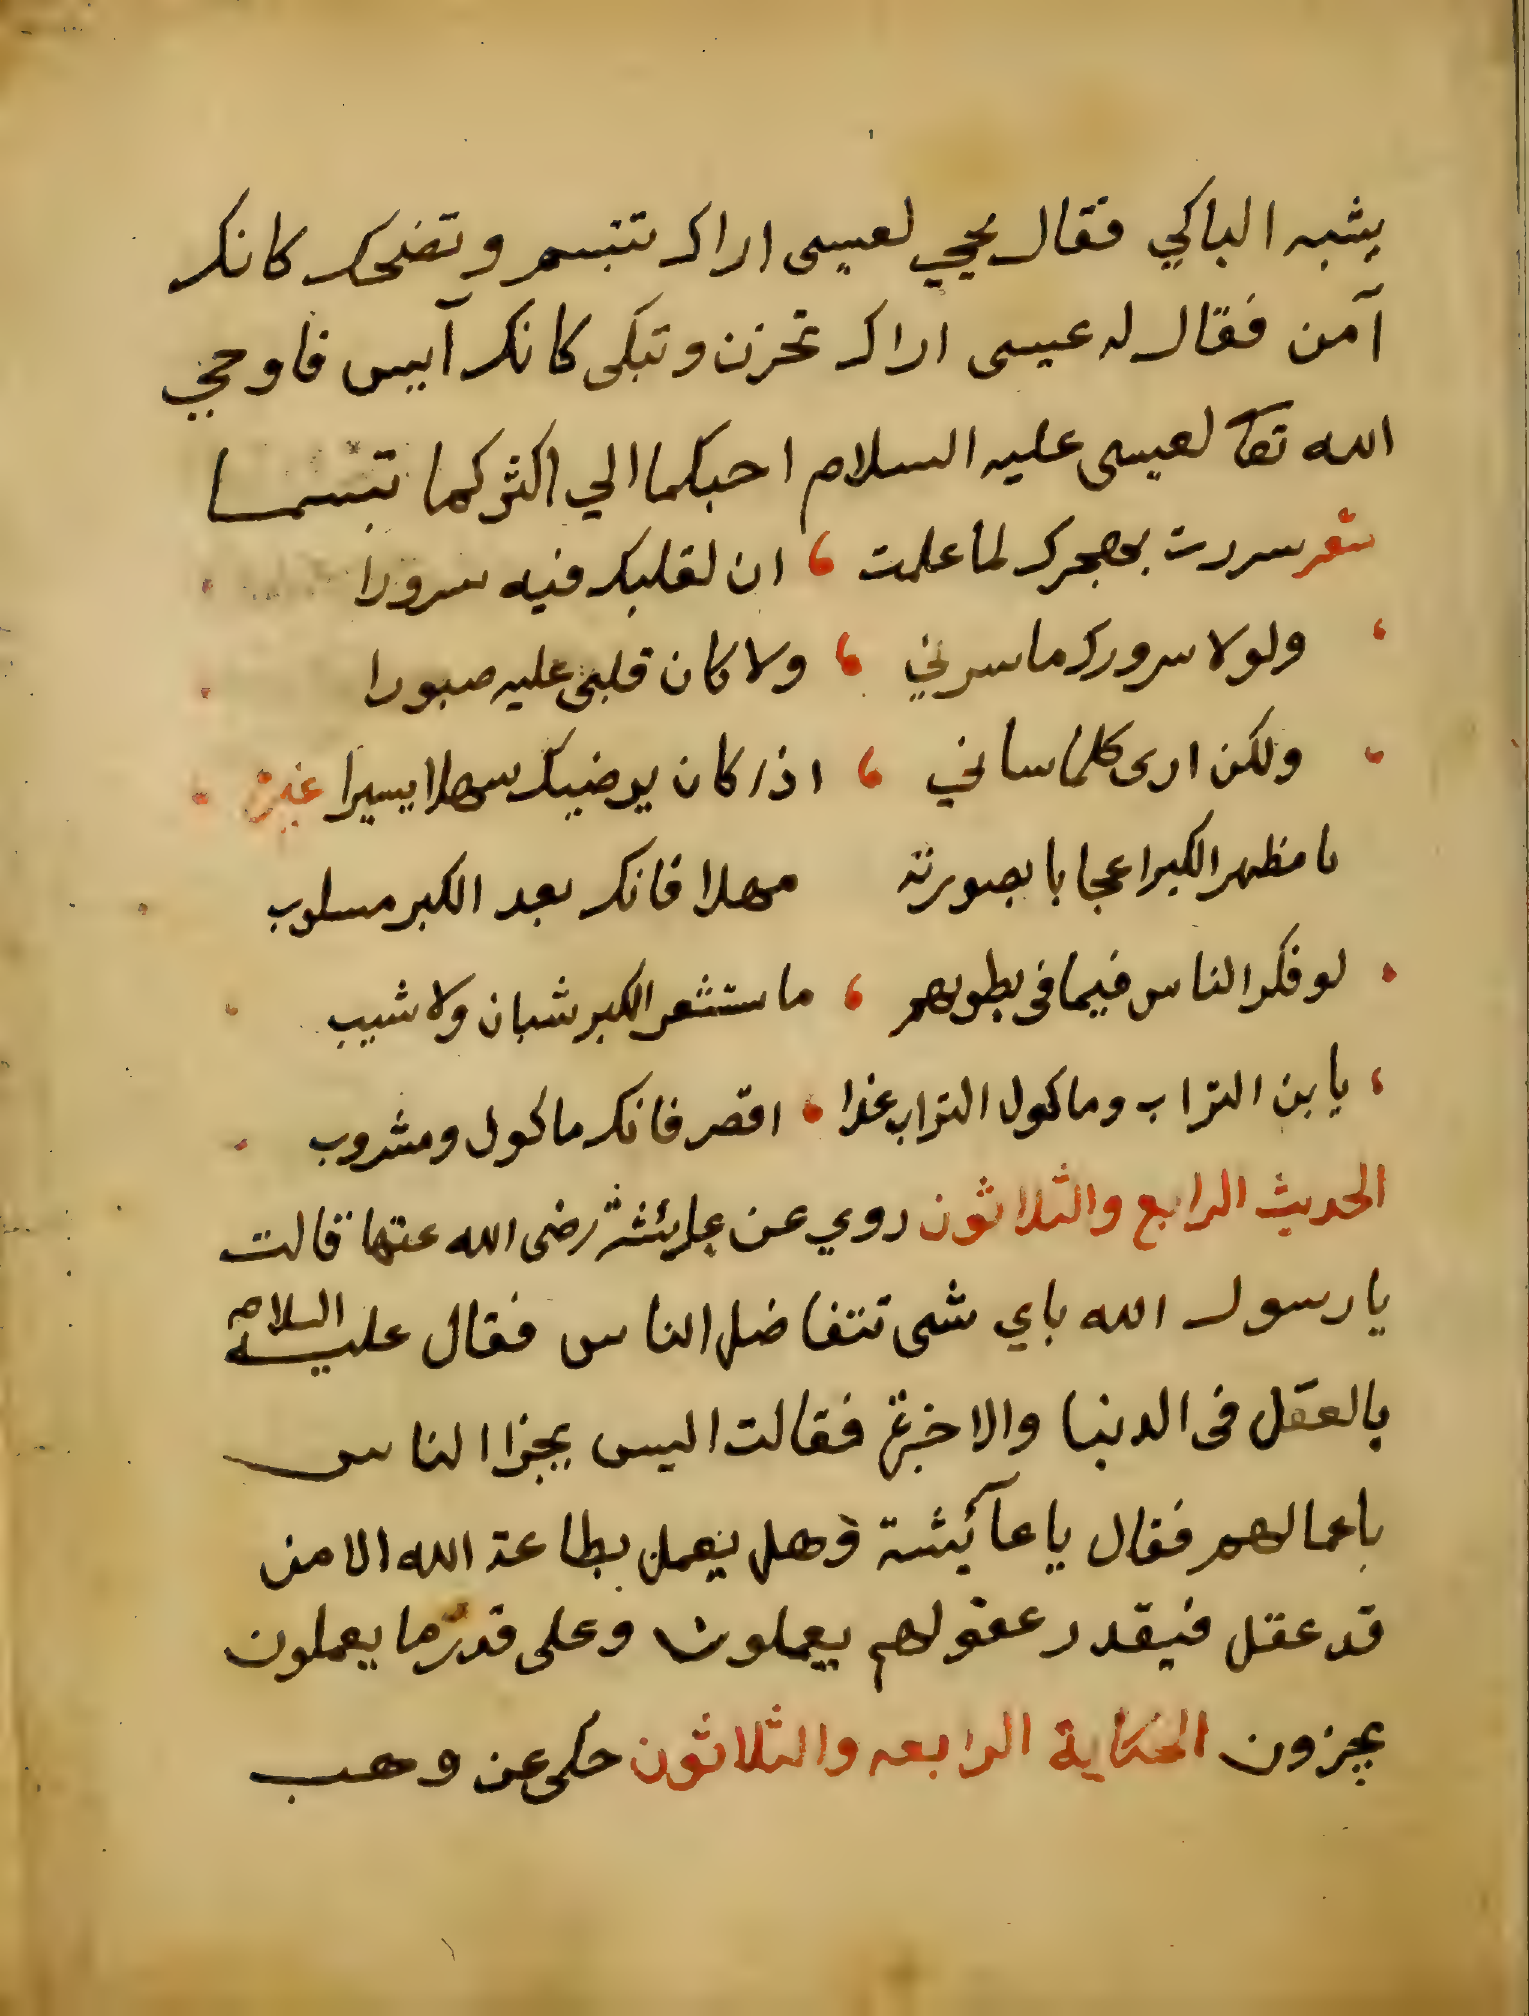 يشبه الباكي فقال يحيي لعيسى اراك تتبسم وتضحك كانك
آمن فقال له عيسى اراك تحزن وتبكى كانك آييس فاوحي
الله تعا لعيسى عليه السلام احبكما الي اكثركما تبسما
شعر سررت بهجرك لما علمت ، ان لقلبك فيه سرورا
، ولولا سرورك ما سرني ، ولا كان قلبى عليه صبورا
ولكن ارى كلما ساني ، اذا كان يرضيك سهلا يسيرا غيره
يا مظهر الكبر اعجابا بصورته مهلا فانك بعد الكبر مسلوب
لو فكر الناس فيما فى بطونهم ، ما ستشعر الكبر شبان ولا شيب
، يا بن التراب وماكول التراب غدا ، اقصر فانك ماكول ومشروب
الحديث الرابع والثلاثون روي عن عايئشة رضى الله عنها قالت
يا رسول الله باي شى تتفاضل الناس فقال عليه السلام
بالعقل فى الدنيا والاخرة فقالت اليس يجزا الناس
باعمالهم فقال يا عآئشة وهل يعمل بطاعة الله الا من
قد عقل فبقدر عقولهم يعملون وعلى قدر ما يعملون
يجزون الحكاية الرابعه والثلاثون حكى عن وهب